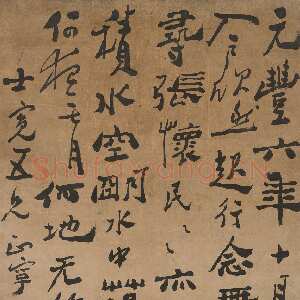 元豐六年十月
入戶欣然起行念無
尋張懷民民亦
積水空明水中
何夜無月何地无
士寬五兄正寧